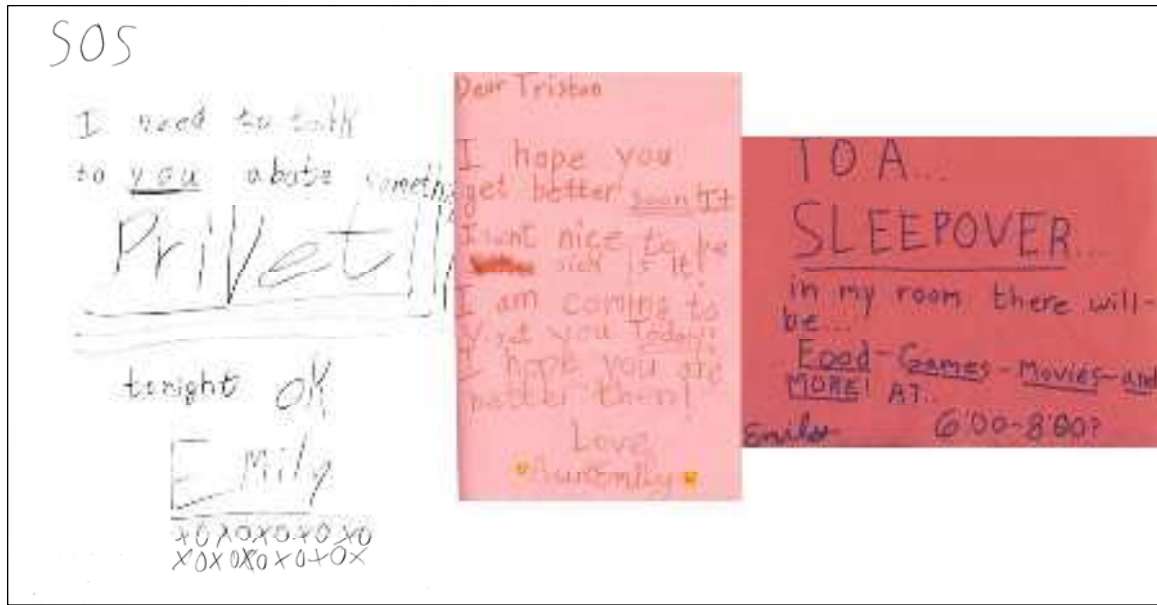 SOS
I need to talk
to you abote someth
Privet!!
tonight OK
EMily
XOXOXOXOXO
XOXOXOXOXOX
Dear Tristan
I hope you
get better soon It
isint nice to be
sick is it!
I am coming to
viset you Today!
I hope you are
better then!
Love
Emily
TO A...
SLEEPOVER...
in my room there will-
be...
Food-Games-Movies-and
MORE! AT..
Emily 6:00-8:00?